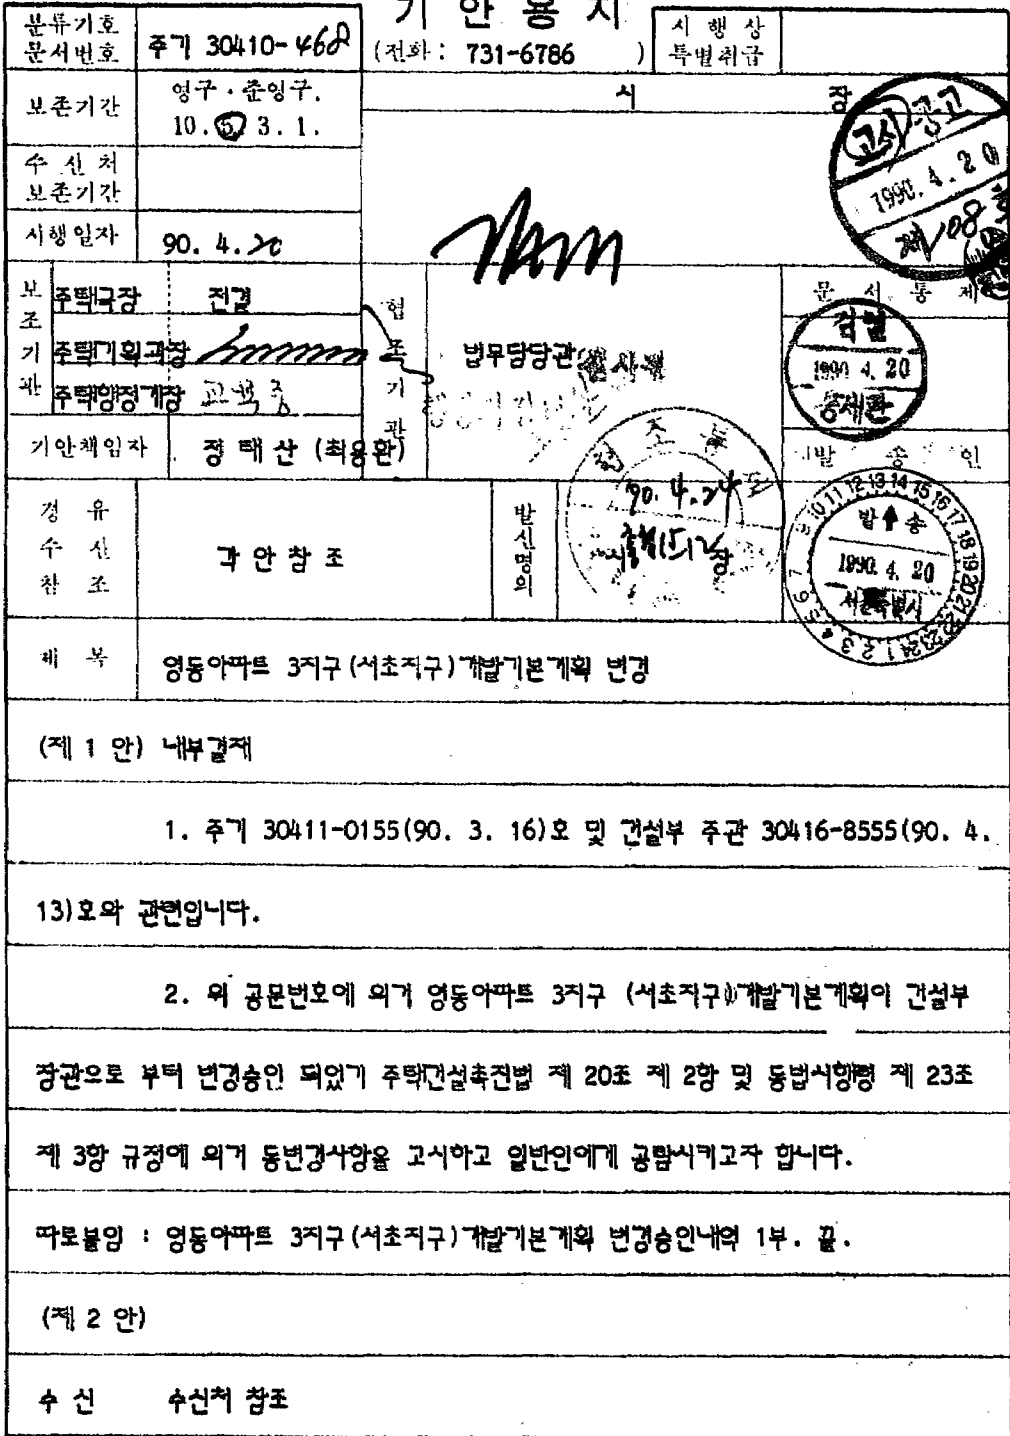 기 안 용 지
분류기호
문서번호
주기 30410-468
(전화 : 731-6786 )
시 행 상
특별취급
보존기간
영구 · 준영구.
10. 5. 3. 1.
시 장
고시 공고
1990. 4. 20
제 108 호
수 신 처
보존기간
시행일자
90. 4. 20
보조기관
주택국장 전결
주택기획과장
주택행정계장 교육중
협조기관
법무담당관
문 서 통 제
검열
1990. 4. 20
기안책임자
정 태 산 (최용환)
발 송 인
경 유
수 신
참 조
각 안 참 조
발신명의
90. 4. 24
장
발 송
1990. 4. 20
서울특별시
제 목
영동아파트 3지구(서초지구)개발기본계획 변경
(제 1 안) 내부결재
1. 주기 30411-0155(90. 3. 16)호 및 건설부 주관 30416-8555(90. 4.
13)호와 관련입니다.
2. 위 공문번호에 의거 영동아파트 3지구 (서초지구)개발기본계획이 건설부
장관으로 부터 변경승인 되었기 주택건설촉진법 제 20조 제 2항 및 동법시행령 제 23조
제 3항 규정에 의거 동변경사항을 고시하고 일반인에게 공람시키고자 합니다.
따로붙임 : 영동아파트 3지구(서초지구)개발기본계획 변경승인내역 1부. 끝.
(제 2 안)
수 신 수신처 참조